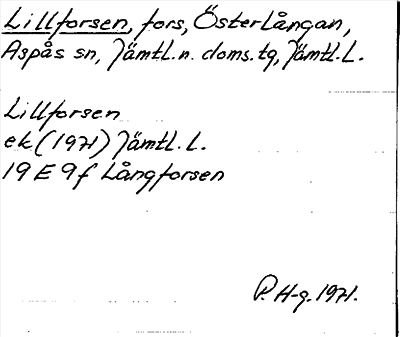 Lillforsen, fors, Österlångan,
Aspås sn, Jämtl. n. doms. tg, Jämtl. L.
Lillforsen
ek (1971) Jämtl. L.
19 E 9f Långforsen
P. H-g. 1971.